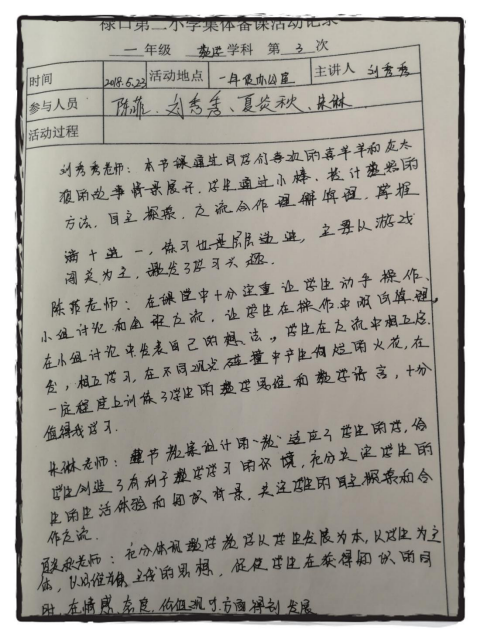 禄口第二小学集体备课活动记录
一年级 数学学科 第 3 次
时间 2018.5.23 活动地点 一年级办公室 主讲人 刘秀秀
参与人员 陈菲、刘秀秀、夏良秋、朱琳
活动过程
刘秀秀老师：本节课通过同学们喜欢的喜羊羊和灰太
狼的故事情景展开，学生通过小棒、找计数器的
方法，自主探索、交流合作理解算理，掌握
满十进一，练习也是层层递进，主要以游戏
闯关为主，激发了学习兴趣。
陈菲老师：在课堂中十分注重让学生动手操作、
小组讨论和全班交流，让学生在操作中明白算理，
在小组讨论中发表自己的想法，学生在交流中相互启
发，相互学习，在不同观点碰撞中产生绚烂的火花，在
一定程度上训练了学生的数学思维和数学语言，十分
值得我学习.
朱琳老师：整节教案设计的“教”适应了学生的学，给
学生创造了有利于数学学习的环境，充分关注学生的
生的生活体验和知识背景，关注学生的自主探索和合
作交流.
夏良秋老师：充分体现数学教学以学生发展为本，以学生为主
体，以思维为主线的思想，促使学生在获得知识的同
时，在情感、态度、价值观等方面得到发展